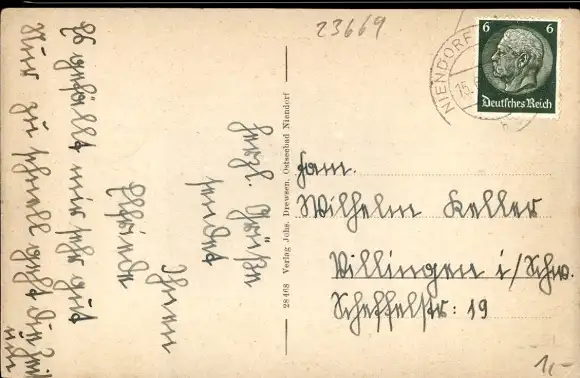 23669
NIENDORF
15.
6 6
Deutsches Reich
Es gefällt mir sehr gut
Nur zu schnell geht die Zeit
um
herzl.
Grüße
sendet
28468 Verlag Johs. Drewsen, Ostseebad Niendorf
Fam.
Wilhelm Keller
Villingen i/Schw.
Scheffelstr: 19
1,-